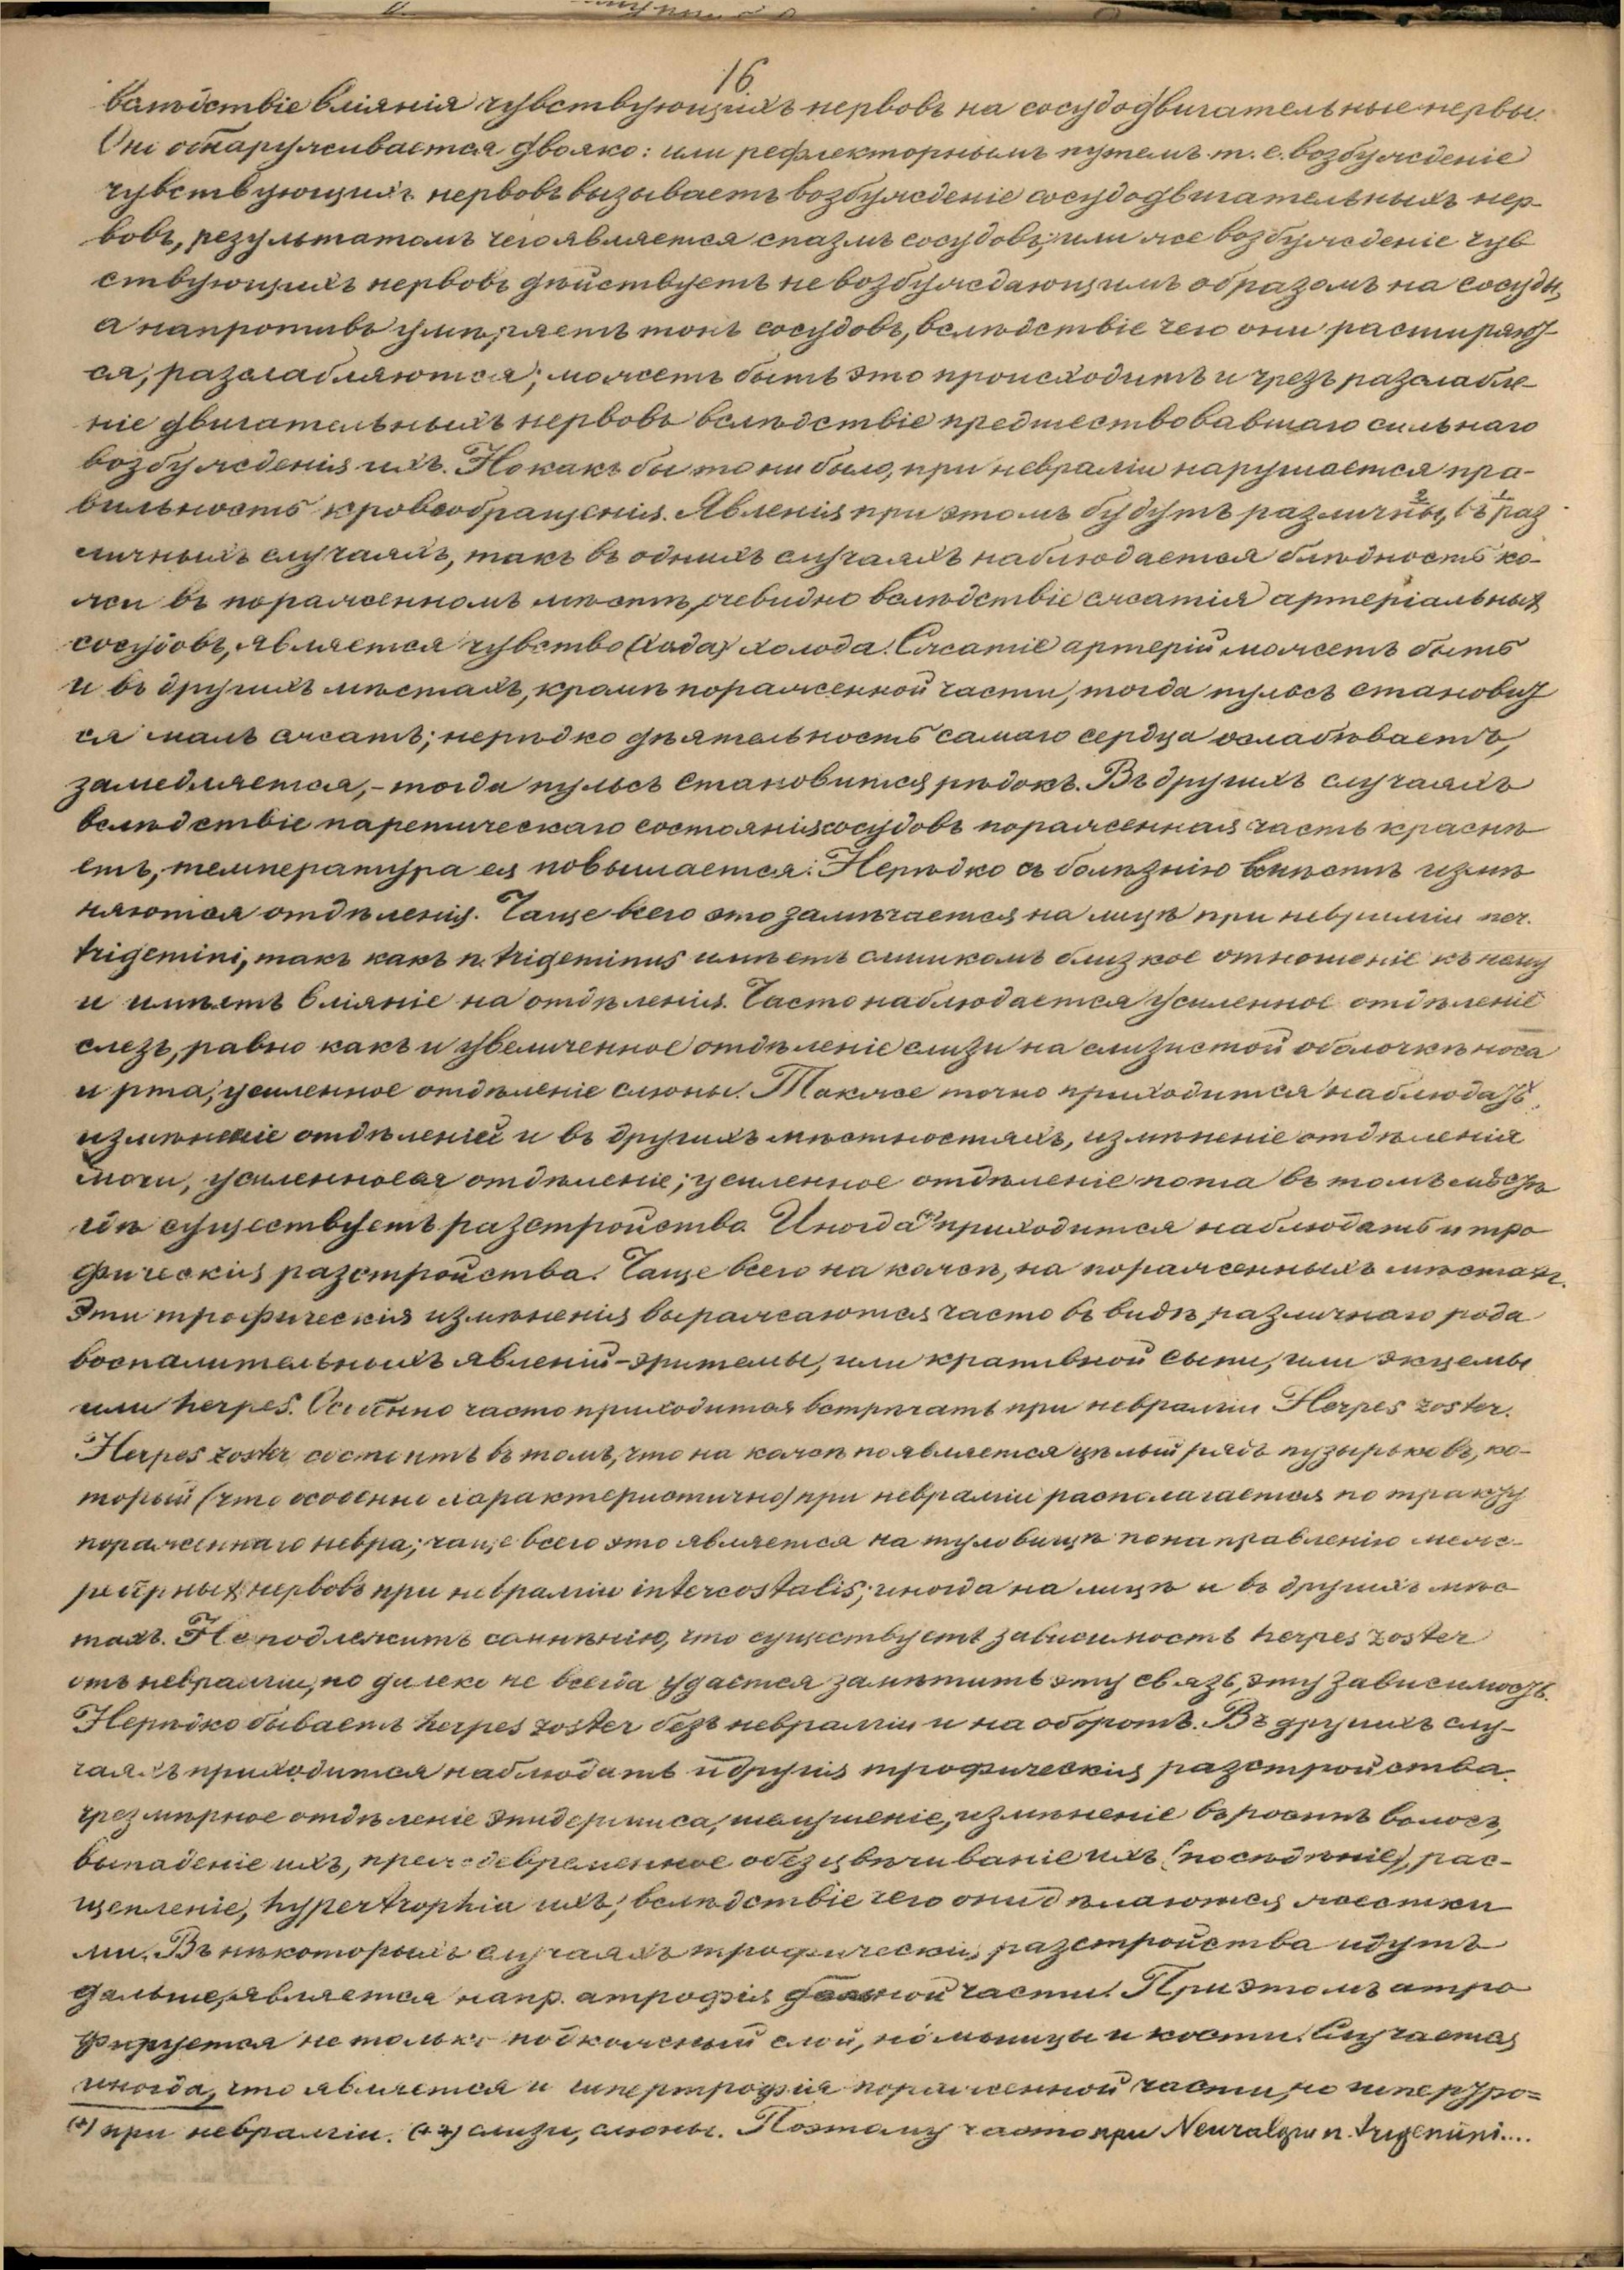 16.
вслѣдствіе вліянія чувствующихъ нервовъ на сосудодвигательные нервы.
Они обнаруживается двояко: или рефлекторнымъ путемъ т. е. возбужденіе
чувствующихъ нервовъ вызываетъ возбужденіе сосудодвигательныхъ нер-
вовъ, результатомъ чего является спазмъ сосудовъ; или же возбужденіе чув
ствующихъ нервовъ дѣйствуетъ не возбуждающимъ образомъ на сосуды,
а напротивъ умѣряетъ тонъ сосудовъ, вслѣдствіе чего они расширяют-
ся, разслабляются; можетъ быть это происходитъ и чрезъ разслабле-
ніе двигательныхъ нервовъ вслѣдствіе предшествовавшаго сильнаго
возбужденія ихъ. Но какъ бы то ни было, при невралгіи нарушается пра-
вильность кровообращенія. Явленія при этомъ будутъ различны, въ раз
личныхъ случаяхъ, такъ въ однихъ случаяхъ наблюдается блѣдность ко-
жи въ пораженномъ мѣстѣ, очевидно вслѣдствіе сжатія артеріальных
сосудовъ, является чувство (хода) холода. Сжатіе артерій можетъ быть
и въ другихъ мѣстахъ, кромѣ пораженной части, тогда пульсъ становит
ся малъ сжатъ; нерѣдко дѣятельность самаго сердца ослабѣваетъ,
замедляется, - тогда пульсъ становится рѣдокъ. Въ другихъ случаяхъ
вслѣдствіе паретическаго состоянія сосудовъ пораженная часть краснѣ
етъ, температура ея повышается. Нерѣдко съ болѣзнію вмѣстѣ измѣ
няются отдѣленія. Чаще всего это замѣчается на лицѣ при невралгіи ner.
trigemini, такъ какъ n. trigeminus имѣетъ слишкомъ близкое отношеніе къ нему
и имѣетъ вліяніе на отдѣленія. Часто наблюдается усиленное отдѣленіе
слезъ, равно какъ и увеличенное отдѣленіе слизи на слизистой оболочкѣ носа
и рта, усиленное отдѣленіе слюны. Такжее точно приходится наблюдать
измѣненіе отдѣленій и въ другихъ мѣстностяхъ, измѣненіе отдѣленія
мочи, усиленное отдѣленіе; усиленное отдѣленіе пота въ томъ мѣстѣ
гдѣ существуетъ разстройство. Иногда (+) приходится наблюдать и тро
фическія разстройства. Чаще всего на кожѣ, на пораженныхъ мѣстахъ.
Эти трофическія измѣненія выражаются часто въ видѣ различнаго рода
воспалительныхъ явленій - эритемы, или крапивной сыпи, или экземы
или herpes. Особенно часто приходится встрѣчать при невралгіи Herpes zoster.
Herpes zoster состоитъ въ томъ, что на кожѣ появляется цѣлый рядъ пузырьковъ, ко-
торый (что особенно характеристично) при невралгіи располагается по тракту
пораженнаго невра; чаще всего это является на туловищѣ по направленію меж-
реберныхъ нервовъ при невралгіи intercostalis; иногда на лицѣ и въ другихъ мѣс
тахъ. Не подлежитъ сомнѣнію, что существуетъ зависимость herpes zoster
отъ невралгіи, но далеко не всегда удается замѣтить эту связь, эту зависимость.
Нерѣдко бываетъ herpes zoster безъ невралгіи и на оборотъ. Въ другихъ слу-
чаяхъ приходится наблюдать и другія трофическія разстройства.
чрезмѣрное отдѣленіе эпидермиса, шелушеніе, измѣненіе въ ростѣ волосъ,
выпаденіе ихъ, преждевременное обезцвѣчиваніе ихъ (посѣдѣніе), рас-
щепленіе, hypertrophia ихъ, вслѣдствіе чего они дѣлаются жестки
ми. Въ нѣкоторыхъ случаяхъ трофическія разстройства идутъ
дальше, является напр. атрофія данной части. При этомъ атро
фируется не только подкожный слой, но мышцы и кости. Случается
иногда, что является и гипертрофія пораженной части, но гипертро=
(+) при невралгіи. (++) слизи, слюны. Поэтому часто при Neuralgia n. trigemini....